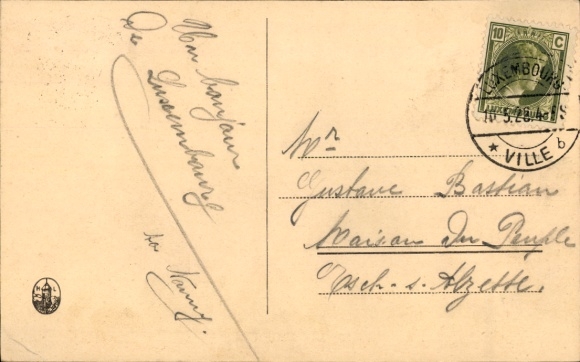 Un bonjour
De Luxembourg
10 C
LUXEMBOURG
LUXEMBOURG
VILLE 6
Mr
Gustave Bastian
Maison Du Peuple
Esch-s-Alzette.